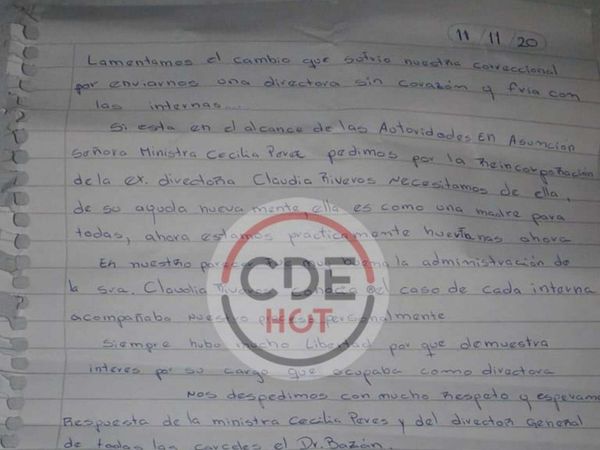 11/11/20
Lamentamos el cambio que sofrio nuestra correccional
por enviarnos una directora sin corazón y fria con
las internas...
Si esta en el alcance de las Autoridades En Asuncion
Señora Ministra Cecilia Perez pedimos por la Reincorporación
de la ex. directora Claudia Riveros Necesitamos de ella,
de su ayuda nueva mente, ella es como una madre para
todas, ahora estamos practicamente huerfanas ahora
En nuestro muy buena la administración de
la sra. Claudia Riveros caso de cada interna
acompañaba nuestro personalmente
Siempre hubo mucho Libertad por que demuestra
interes por su cargo que ocupaba como directora
Nos despedimos con mucho Respeto y esperamo
Respuesta de la ministra Cecilia Peres y del director General
de todas las carceles el Dr. Bazán.
CDE
HOT